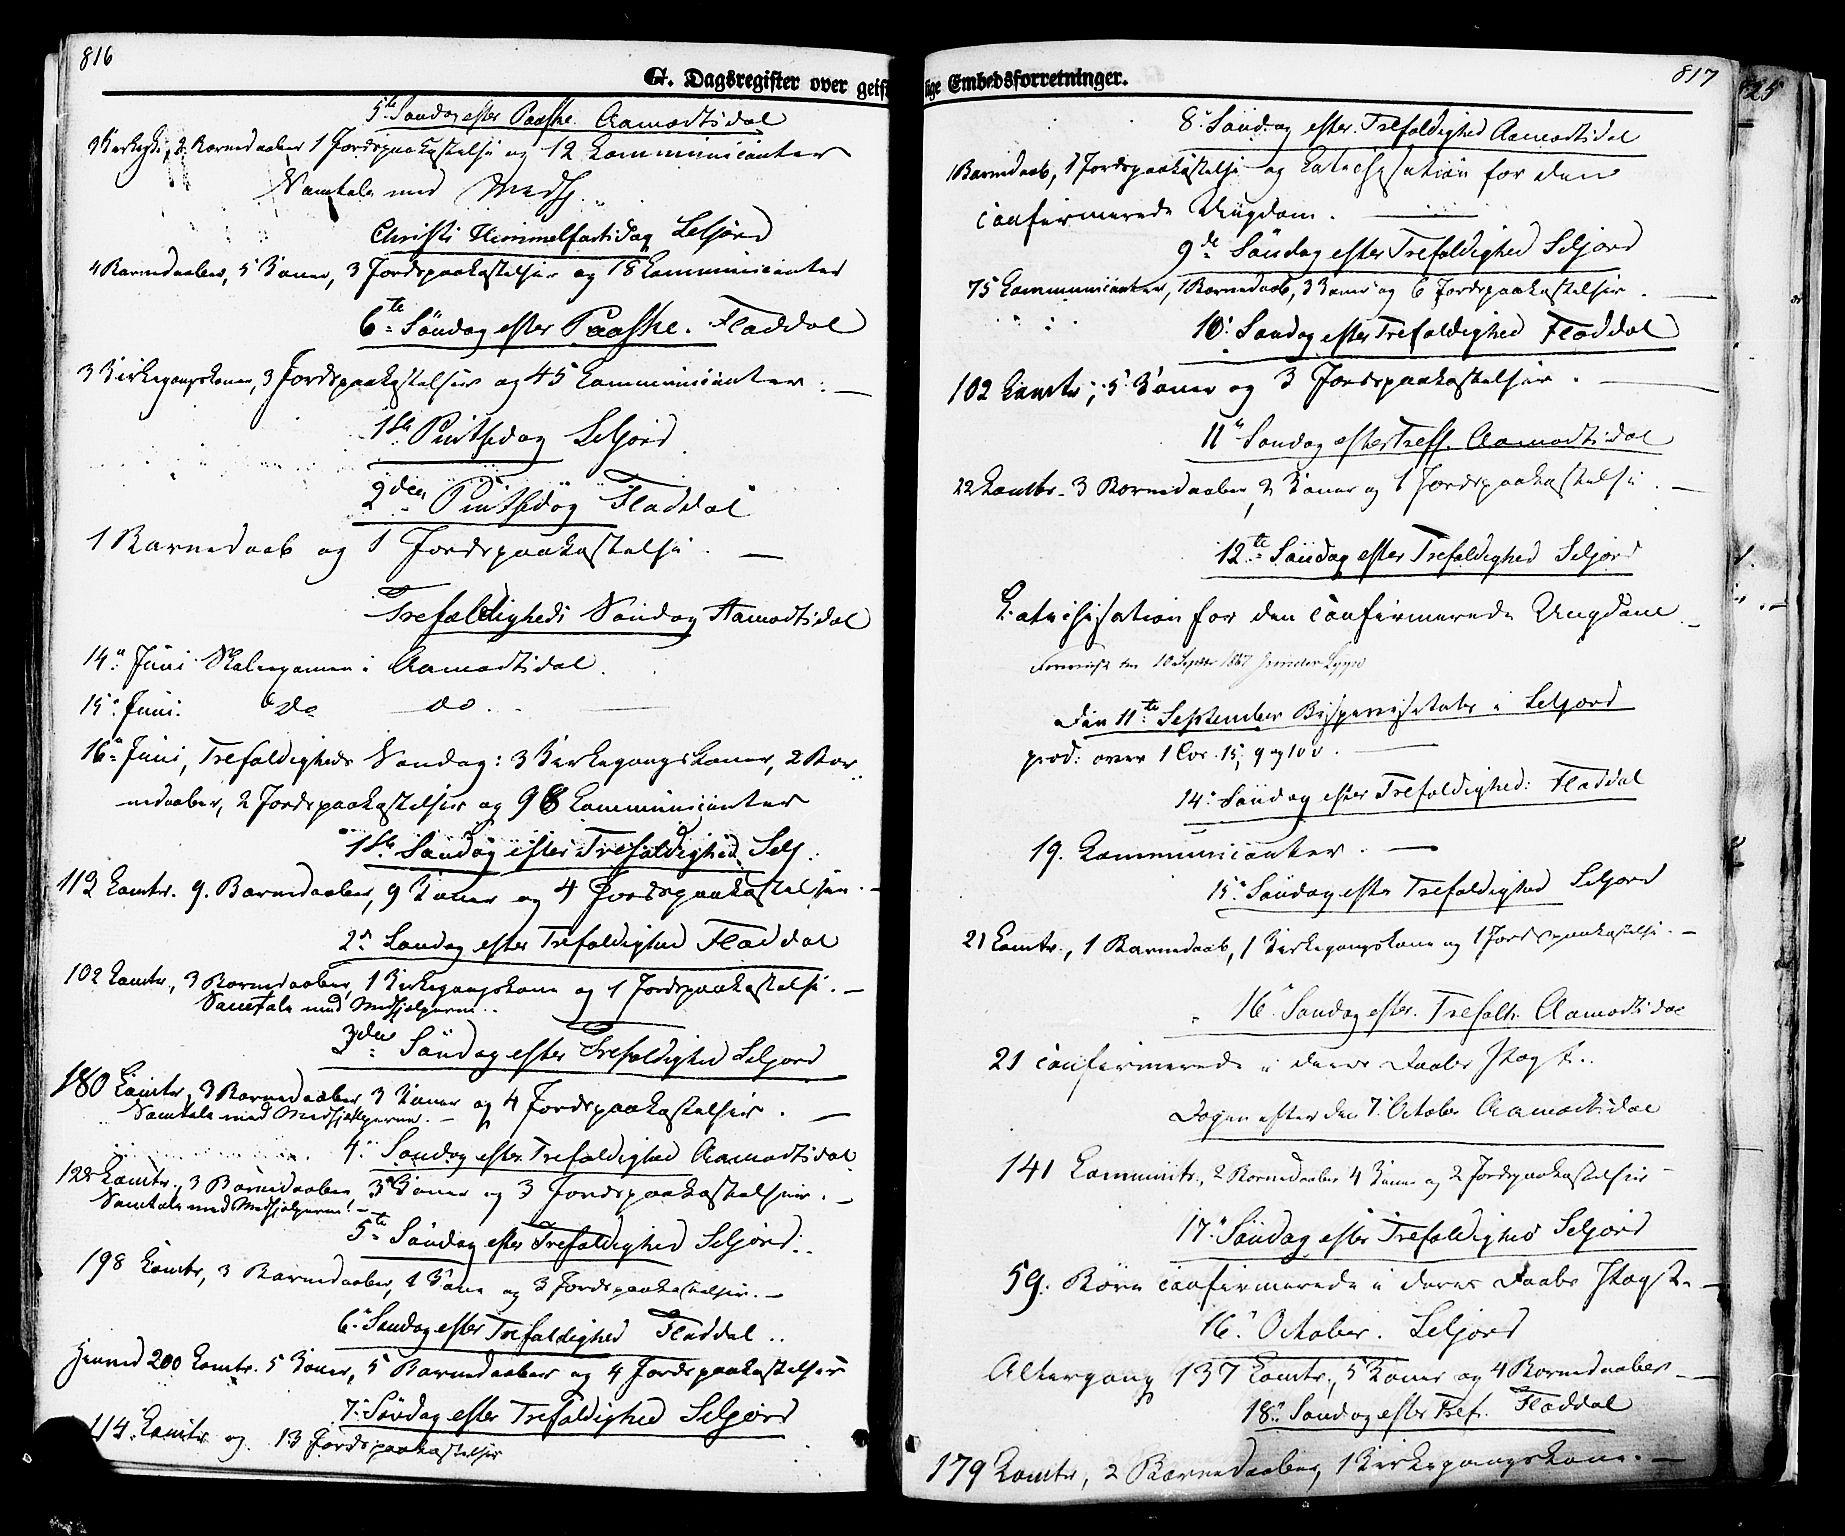 816
G. Dagsregister over geist
5te Søndag efter Paaske. Aamodtsdal
2 Barnedaaber 1 Jordspaakastelse og 12 Communicanter
Samtale med Medhj.
Christi Himmelfartsdag Seljord
4 Barnedaaber, 5 Koner, 3 Jordspaakastelser og 18 Communicanter
6te Søndag efter Paaske. Fladdal
3 Kirkegangskoner, 3 Jordspaakastelser og 45 Communicanter. —
1ste Pintsedag Seljord
2den Pintsedag Fladdal
1 Barnedaab og 1 Jordspaakastelse. —
Trefoldigheds Søndag Aamodtsdal
14. Juni Skoleexamen i Aamodtsdal.
15. Juni. do do.
16. Juni, Trefoldigheds Søndag: 3 Kirkegangskoner, 2 Bar
nedaaber, 2 Jordspaakastelser og 98 Communicanter
1ste Søndag efter Trefoldighed Selj.
112 Comtr. 9. Barnedaaber, 9 Koner og 4 Jordspaakastelser. —
2n Søndag efter Trefoldighed Fladdal
102 Comtr., 3 Barnedaaber, 1 Kirkegangskone og 1 Jordspaakastelse. —
Samtale med Medhjelperne..
3den Søndag efter Trefoldighed Seljord
180 Comtr, 3 Barnedaaber, 3 Koner og 4 Jordspaakastelser. —
Samtale med Medhjelperne. —
4. Søndag efter Trefoldighed Aamodtsdal
128 Comtr., 3 Barnedaaber, 3 Koner og 3 Jordspaakastelser. —
Samtale med Medhjelperne. —
5te Søndag efter Trefoldighed Seljord.
198 Comtr, 3 Barnedaaber, 1 Kone og 3 Jordspaakastelser. —
6. Søndag efter Trefoldighed Fladdal..
200 Comtr. 5 Koner, 5 Barnedaaber og 4 Jordspaakastelser
7. Søndag efter Trefoldighed Seljord
114 Comtr og 13 Jordspaakastelser
817
lige Embedsforretninger.
8. Søndag efter Trefoldighed Aamodtsdal
1 Barnedaab, 1 Jordspaakastelse og Catechisation for den
confirmerede Ungdom. —
9de Søndag efter Trefoldighed Seljord
75 Communicanter, 1 Barnedaab, 3 Koner og 6 Jordspaakastelser. —
10. Søndag efter Trefoldighed Fladdal
102 Comtr, 5 Koner og 3 Jordspaakastelser. —
11. Søndag efter Tref. Aamodtsdal
22 Comtr. 3 Barnedaaber, 2 Koner og 1 Jordspaakastelse. —
12te Søndag efter Trefoldighed Seljord
Catechisation for den confirmerede Ungdom. —
10 Septbr 1867
Den 11te September Bispevisitats i Seljord
præd: over 1 Cor. 15, 9 og 10 v. —
14. Søndag efter Trefoldighed: Fladdal
19. Communicanter. —
15. Søndag efter Trefoldighed Seljord
21 Comtr., 1 Barnedaab, 1 Kirkegangskone og 1 Jordspaakastelse. —
16. Søndag efter. Trefoldh. Aamodtsdal
21 confirmerede i deres Daabs Pagt..
Dagen efter den 7. October Aamodtsdal
141 Communtr., 2 Barnedaaber 4 Koner og 2 Jordspaakastelser —
17. Søndag efter Trefoldighed Seljord
59. Børn confirmerede i deres Daabs Pagt. —
16. October. Seljord
Altergang 137 Comtr., 5 Koner og 4 Barnedaaber —
18. Søndag efter Tref. Fladdal
179 Comtr, 2 Barnedaaber, 1 Kirkegangskone. —